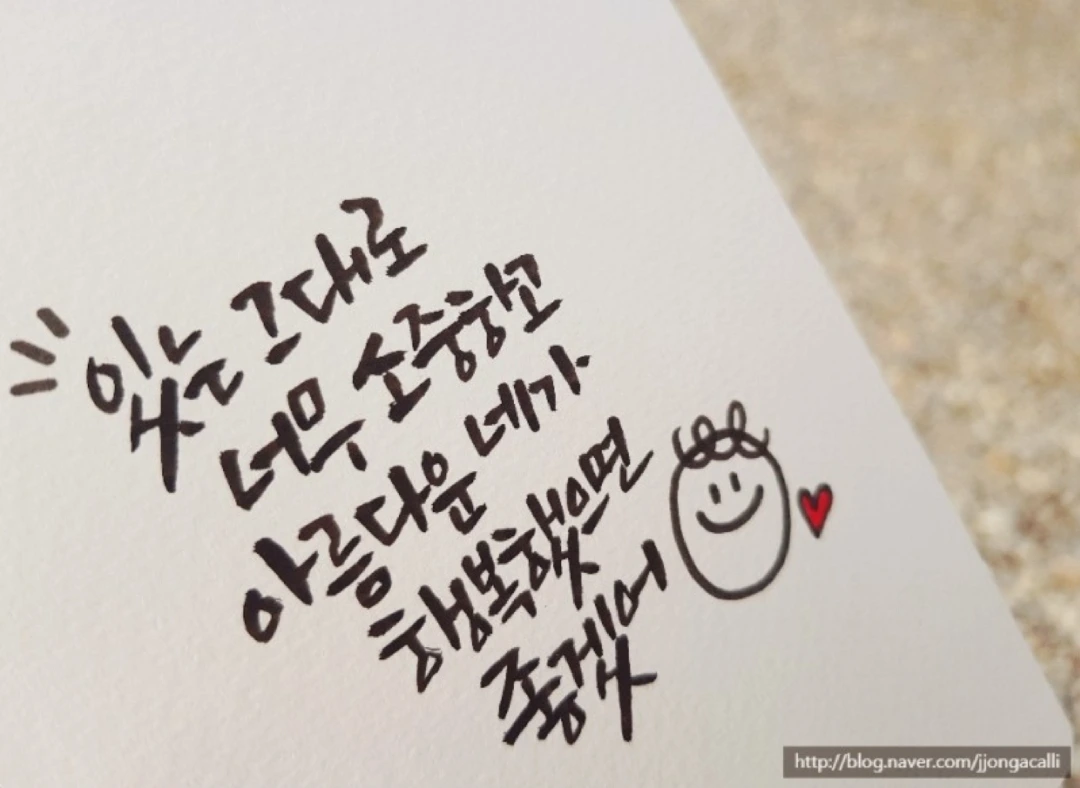 있는 그대로
너무 소중하고
아름다운 네가
행복했으면
좋겠어
http://blog.naver.com/jjongacalli